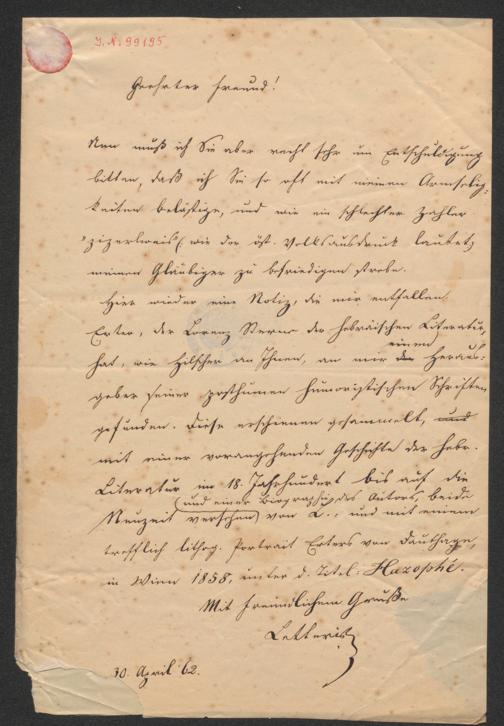 J. N. 99195
Geehrter Freund!
Nun muß ich Sie aber recht sehr um Entschuldigung
bitten, daß ich Sie so oft mit meinen Armselig-
keiten belästige, und wie ein schlechter Zahler
"zizerlweis" (wie der öst. Volksausdruck lautet)
meinen Gläubiger zu befriedigen strebe.
Hier wieder eine Notiz, die mir entfallen.
Erter, der Lorenz Sterne der hebräischen Literatur,
hat, wie Hilscher an Ihnen, an mir einen Heraus-
geber seiner posthumen humoristischen Schriften
gefunden. Diese erschienen gesammelt, und
mit einer vorangehenden Geschichte der hebr.
Literatur im 18. Jahrhundert bis auf die
Neuzeit (und einer Biographie des Autors, beide
versehen) von L.: und mit einem
trefflich lithog. Portrait Erters von Dauthage,
in Wien 1858, unter d. Titel: Hazophé.
Mit freundlichem Gruße
Letteris
30. April 62.